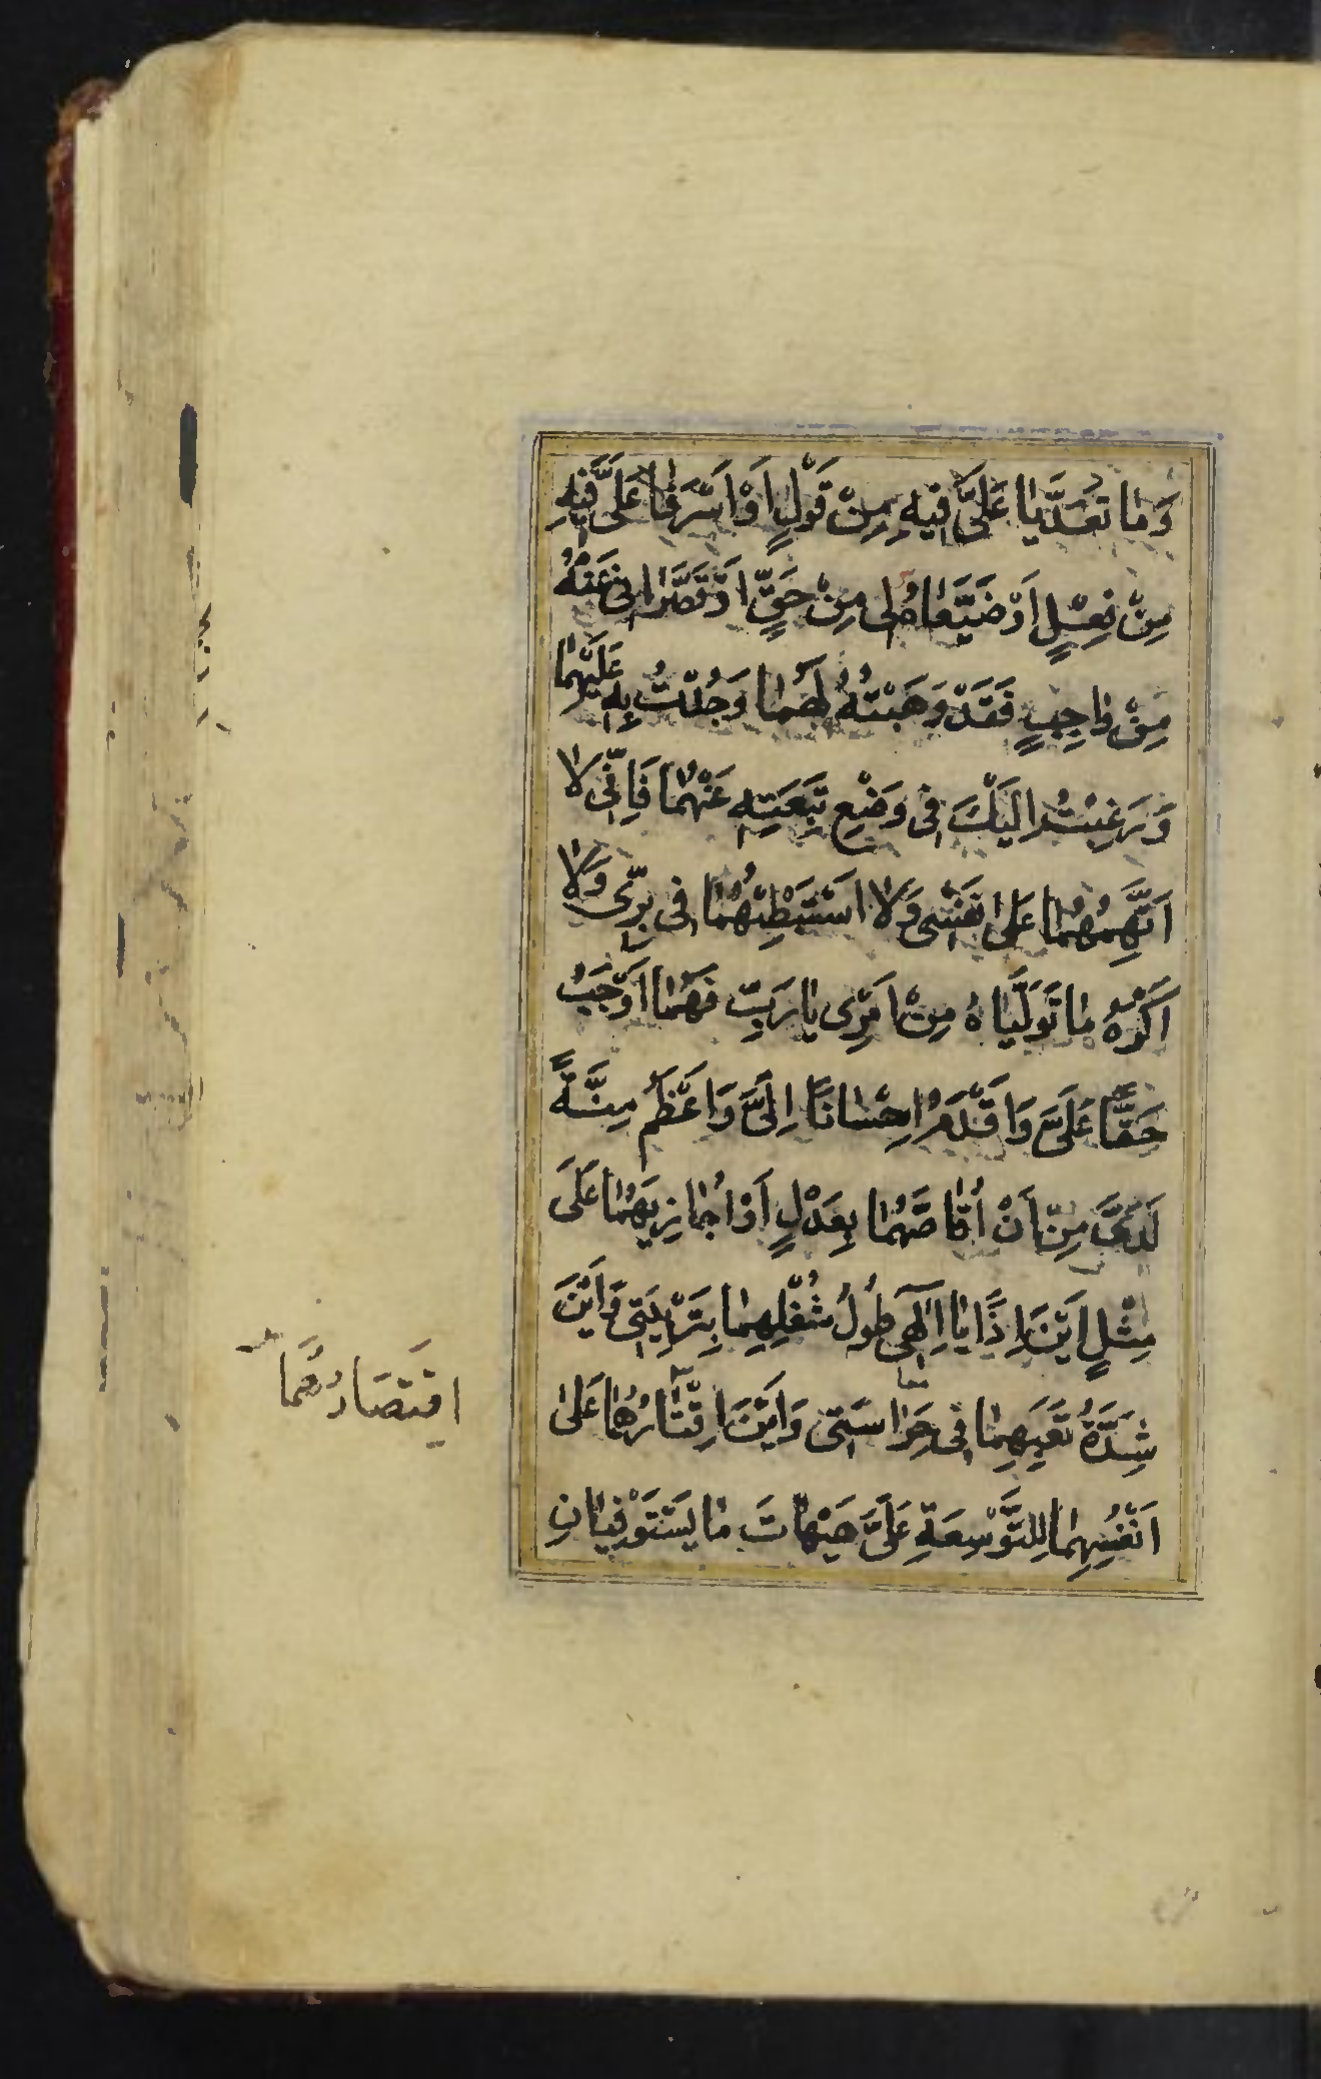 وَمَا تَعَدَّيَا عَلَيَّ فِيهِ مِنْ قَوْلٍ اَوْ اَسْرَفَا عَلَيَّ فِيهِ
مِنْ فِعْلٍ اَوْ ضَيَّعَاهُ لِى مِنْ حَقٍّ اَوْ قَصَّرَا بِى عَنْهُ
مِنْ وَاجِبٍ فَقَدْ وَهَبْتُهُ لَهُمَا وَجُدْتُ بِهِ عَلَيْهِمَا
وَرَغِبْتُ اِلَيْكَ فِى وَضْعِ تَبِعَتِهِ عَنْهُمَا فَاِنِّى لَا
اَتَّهِمُهُمَا عَلَى نَفْسِى وَلَا اَسْتَبْطِئُهُمَا فِى بِرِّى وَلَا
اَكْرَهُ مَا تَوَلَّيَاهُ مِنْ اَمْرِى يَا رَبِّ فَهُمَا اَوْجَبُ
حَقًّا عَلَيَّ وَاَقْدَمُ اِحْسَانًا اِلَيَّ وَاَعْظَمُ مِنَّةً
لَدَيَّ مِنْ اَنْ اُقَاصَّهُمَا بِعَدْلٍ اَوْ اُجَازِيَهُمَا عَلَى
مِثْلٍ اَيْنَ اِذًا يَا اِلٰهِى طُولُ شُغْلِهِمَا بِتَرْبِيَتِى وَاَيْنَ
شِدَّةُ تَعَبِهِمَا فِى حِرَاسَتِى وَاَيْنَ اِقْتَارُهُمَا عَلَى
اَنْفُسِهِمَا لِلتَّوْسِعَةِ عَلَيَّ هَيْهَاتَ مَا يَسْتَوْفِيَانِ
اقتَصَادُهُمَا